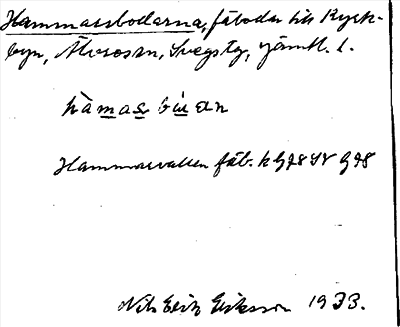 Hammassbodarna, fäbodar till Kyrk-
byn, Älvrosen, Svegstg, Jämtl. l.
hàmas bu an
Hammarvallen fäb. k G98 SV G98
Nils Erik Eriksson 1933.